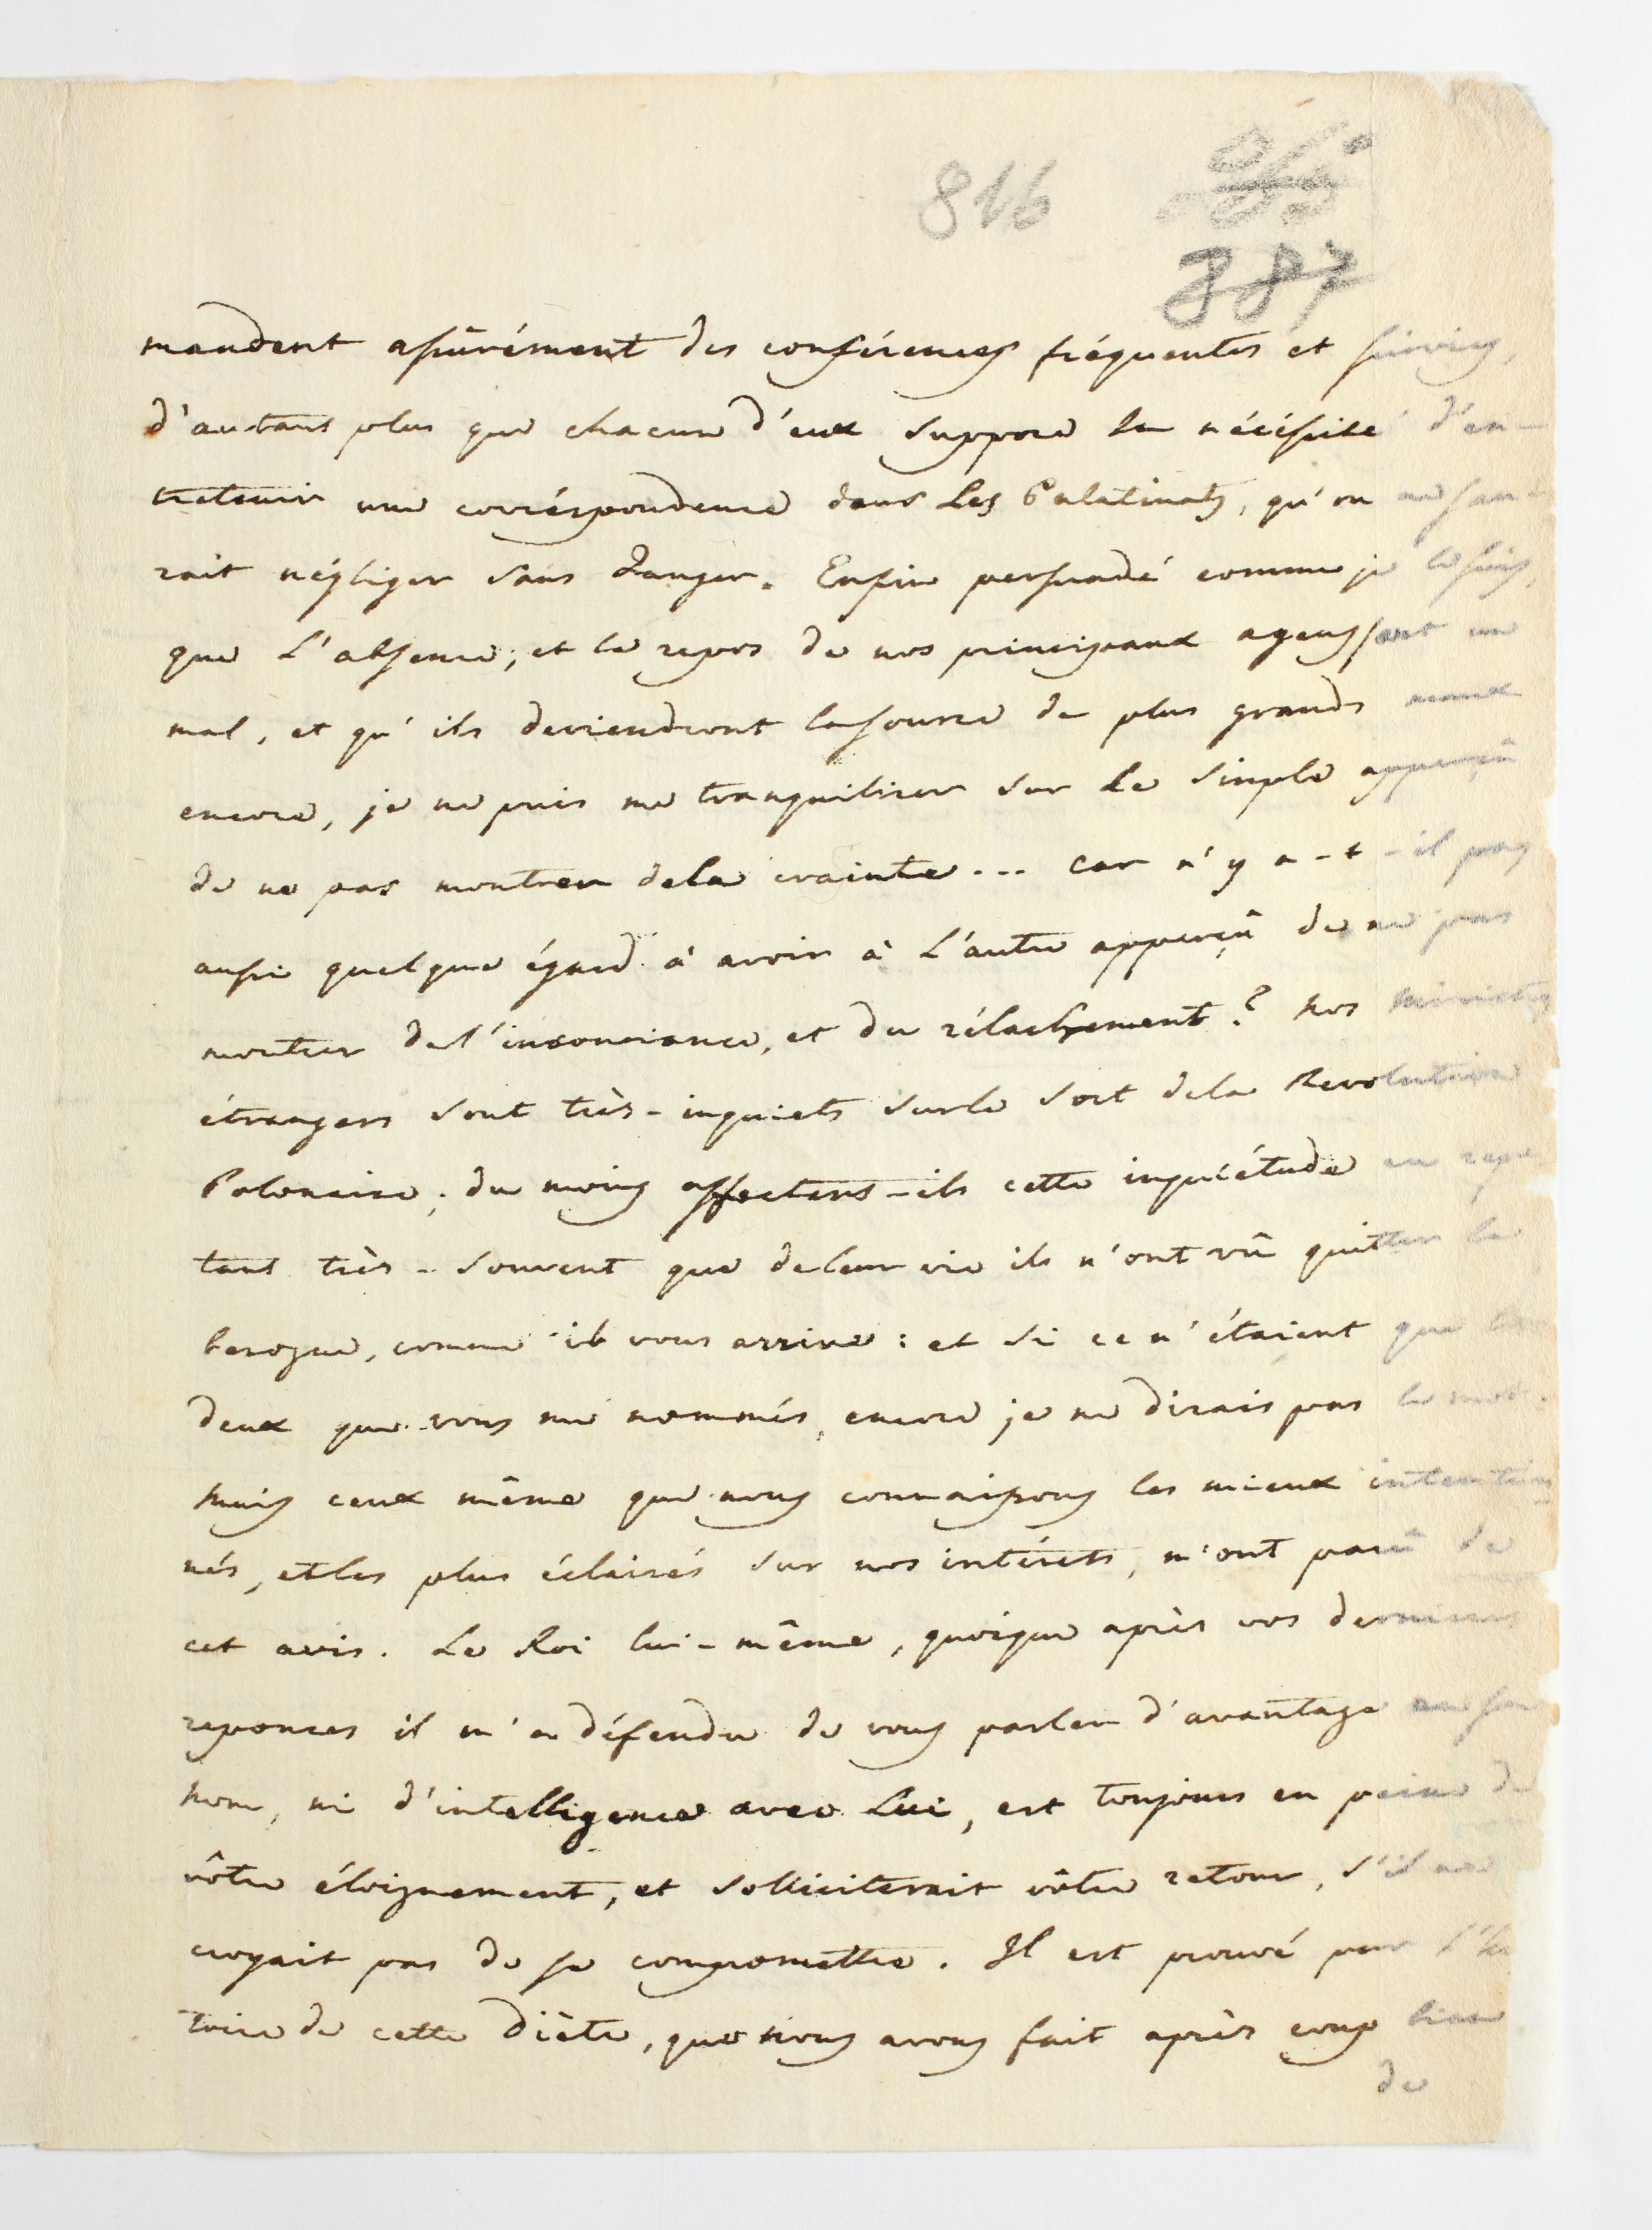 816
387
mandent assûrément des conférences fréquentes et suivies,
d'autant plus que chacun d'eux suppose la nécéssité d'en-
tretenir une corréspondence dans Les Palatinats, qu'on ne sau-
rait négliger sans danger. Enfin persuadé comme je le suis,
que L'absence, et le repos de nos principaux agens sont un
mal, et qu'ils deviendront la source de plus grands maux
encore, je ne puis me tranquiliser sur Le simple apperçû
de ne pas montrer de la crainte... Car n'y a-t-il pas
aussi quelque égard à avoir à L'autre apperçû de ne pas
montrer de l'insouciance, et du rélachement? Nos Ministres
étrangers sont très-inquiets sur le sort de la Revolution
Polonaise; du moins affectens-ils cette inquiétude en repé
tant très-souvent que de leur vie ils n'ont vû quitter la
besogne, comme il vous arrive: et si ce n'étaient que les
deux que vous me nommés, encore je ne dirais pas le mot.
Mais ceux même que nous connaissons les mieux intention
nés, et les plus éclairés sur nos intérets, m'ont parû de
cet avis. Le Roi lui-même, quoique après vos dernieres
reponces il m'a défendu de vous parler d'avantage en son
nom, ni d'intelligence avec Lui, est toujours en peine de
vôtre éloignement, et solliciterait vôtre retour, s'il ne
croyait pas de se compromettre. Il est prouvé par l'his
toire de cette diète, que Nous avons fait après coup bien
de